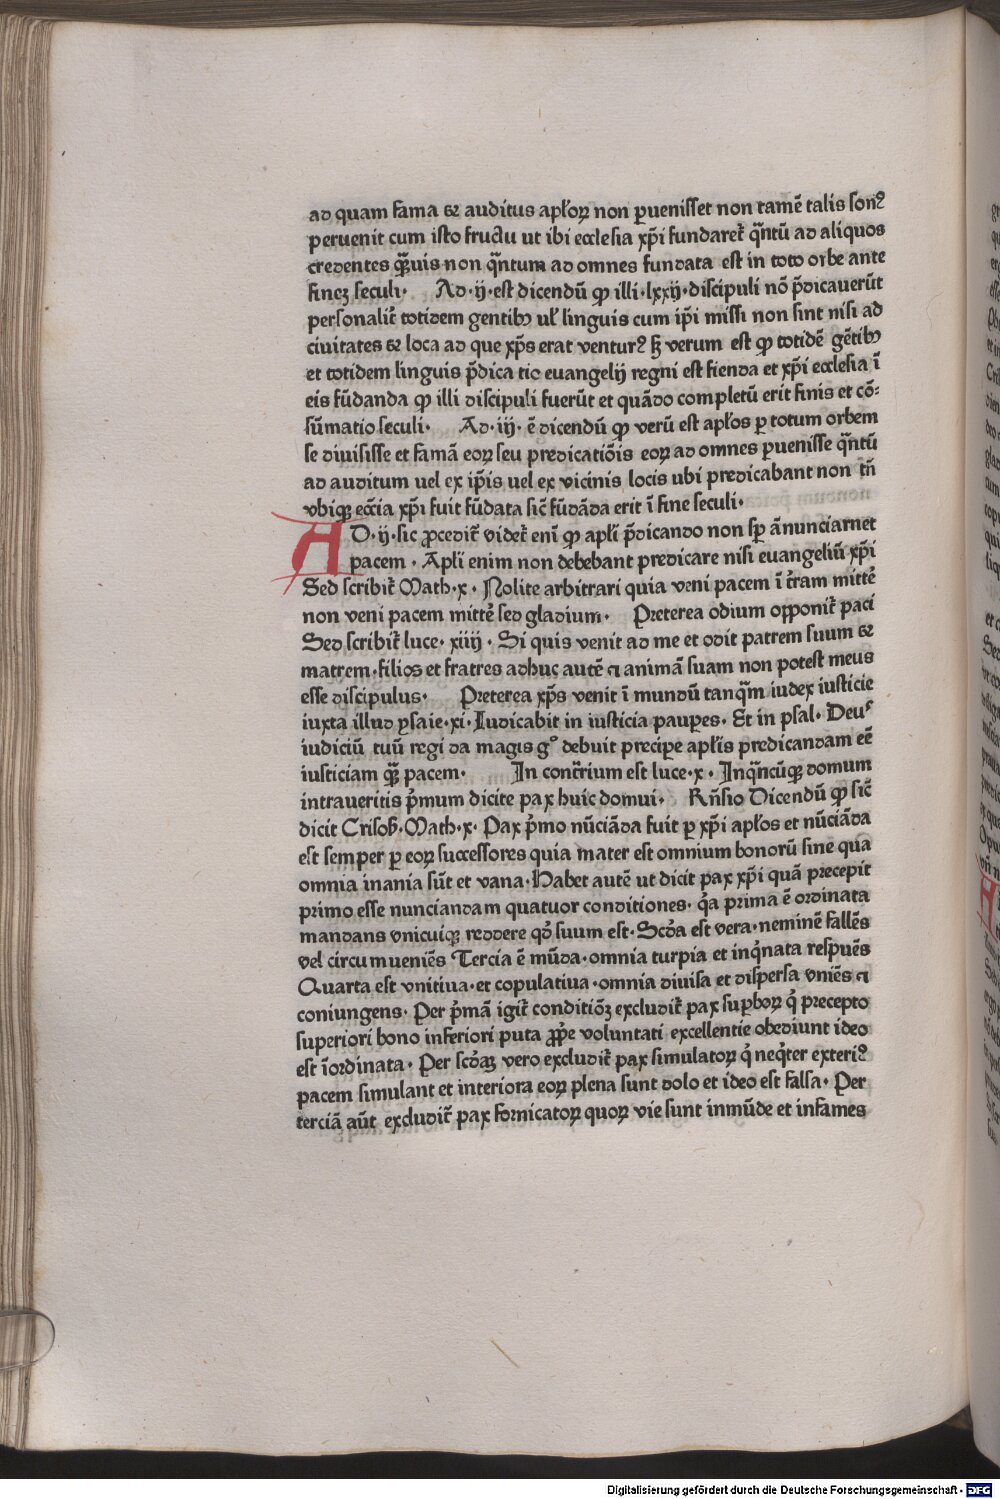 ad quam fama ⁊ auditus apl̃oꝝ non ꝑuenisset non tamē talis sonꝰ
peruenit cum isto fructu ut ibi ecclesia xp̃i fundaret̃ q̃ntū ad aliquos
credentes q̃ꝫuis non q̃ntum ad omnes fundata est in toto orbe ante
fineꝫ seculi· Ad·ij·est dicendū ꝙ illi·lxxij·discipuli nō p̃dicauerūt
personalit̃ totidem gentibꝫ ul̃ linguis cum ip̃i missi non sint nisi ad
ciuitates ⁊ loca ad que xp̃s erat venturꝰ sꝫ verum est ꝙ totidē gētibꝫ
et totidem linguis p̃dica tio euangelij regni est fienda et xp̃i ecclesia ī
eis fūdanda ꝙ illi discipuli fuerūt et quādo completū erit finis et cō⸗
sūmatio seculi· Ad·iij· ē dicendū ꝙ verū est apl̃os ꝑ totum orbem
se diuisisse et famā eoꝝ seu predicatiōis eoꝝ ad omnes ꝑuenisse q̃ntū
ad auditum uel ex ip̃is uel ex vicinis locis ubi predicabant non tñ
vbiqꝫ ecc̃ia xp̃i fuit fūdata sic̃ fūdāda erit ī fine seculi·
AD·ij·sic ꝓcedit̃ videt̃ enī ꝙ apl̃i p̃dicando non sꝑ ānunciarnet
pacem · Apl̃i enim non debebant predicare nisi euangeliū xp̃i
Sed scribit̃ Math·x· Nolite arbitrari quia veni pacem ī t̃ram mitte᷑
non veni pacem mitte᷑ sed gladium· Preterea odium opponit̃ paci
Sed scribit̃ luce· xiiij · Si quis venit ad me et odit patrem suum ⁊
matrem·filios et fratres adhuc autē ⁊ animā suam non potest meus
esse discipulus· Preterea xp̃s venit ī mundū tanq̃m iudex iusticie
iuxta illud ysaie·xi·Iudicabit in iusticia pauꝑes· Et in psal· Deus
iudiciū tuū regi da magis gͦ debuit precipe apl̃is predicandam eē
iusticiam q̃ꝫ pacem· In cont̃rium est luce·x· Inq̃ncūqꝫ domum
intraueritis p̃mum dicite pax huic domui· Rñsio Dicendū ꝙ sic̃
dicit Crisoſt·Math·x· Pax p̃mo nūciāda fuit ꝑ xp̃i apl̃os et nūciāda
est semper ꝑ eoꝝ successores quia mater est omnium bonorū sine qua
omnia inania sūt et vana·Habet autē ut dicit pax xp̃i quā precepit
primo esse nunciandam quatuor conditiones· q̃a prima ē ordinata
mandans vnicuiqꝫ reddere qd̃ suum est·Scd̃a est vera·neminē fallēs
vel circu mueniēs Tercia ē mūda·omnia turpia et inq̃nata respuēs
Quarta est vnitiua·et copulatiua·omnia diuisa et dispersa vniēs ⁊
coniungens· Per p̃mā igit̃ conditiōꝫ excludit̃ pax suꝑboꝝ q̃ precepto
superiori bono inferiori puta ꝓpe voluntati excellentie obediunt ideo
est īordinata· Per scd̃aꝫ vero excludit̃ pax simulatoꝝ q̃ neq̃ter exteriꝰ
pacem simulant et interiora eoꝝ plena sunt dolo et ideo est falsa· Per
terciā aūt excludit̃ pax fornicatoꝝ quoꝝ vie sunt inmūde et infames
Digitalisierung gefördert durch die Deutsche Forschungsgemeinschaft - DFG